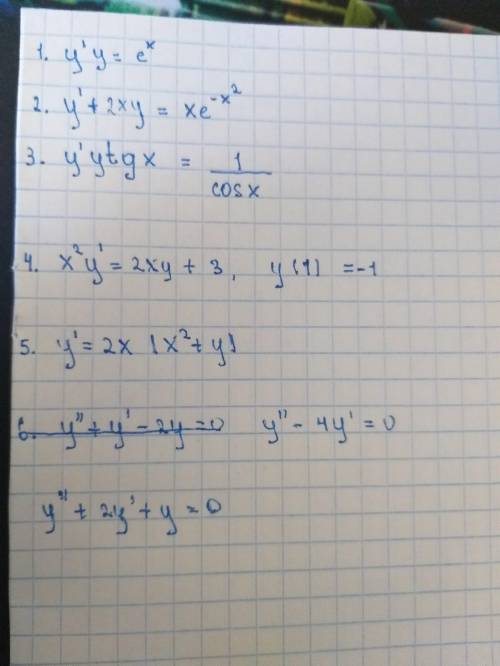 1. y'y = e^x
2. y' + 2xy = xe^{-x^2}
3. y'ytgx = 1/cosx
4. x^2y' = 2xy + 3, y(1) = -1
5. y' = 2x (x^2 + y)
6. y'' + y' - 2y = 0 y'' - 4y' = 0
y'' + 2y' + y = 0